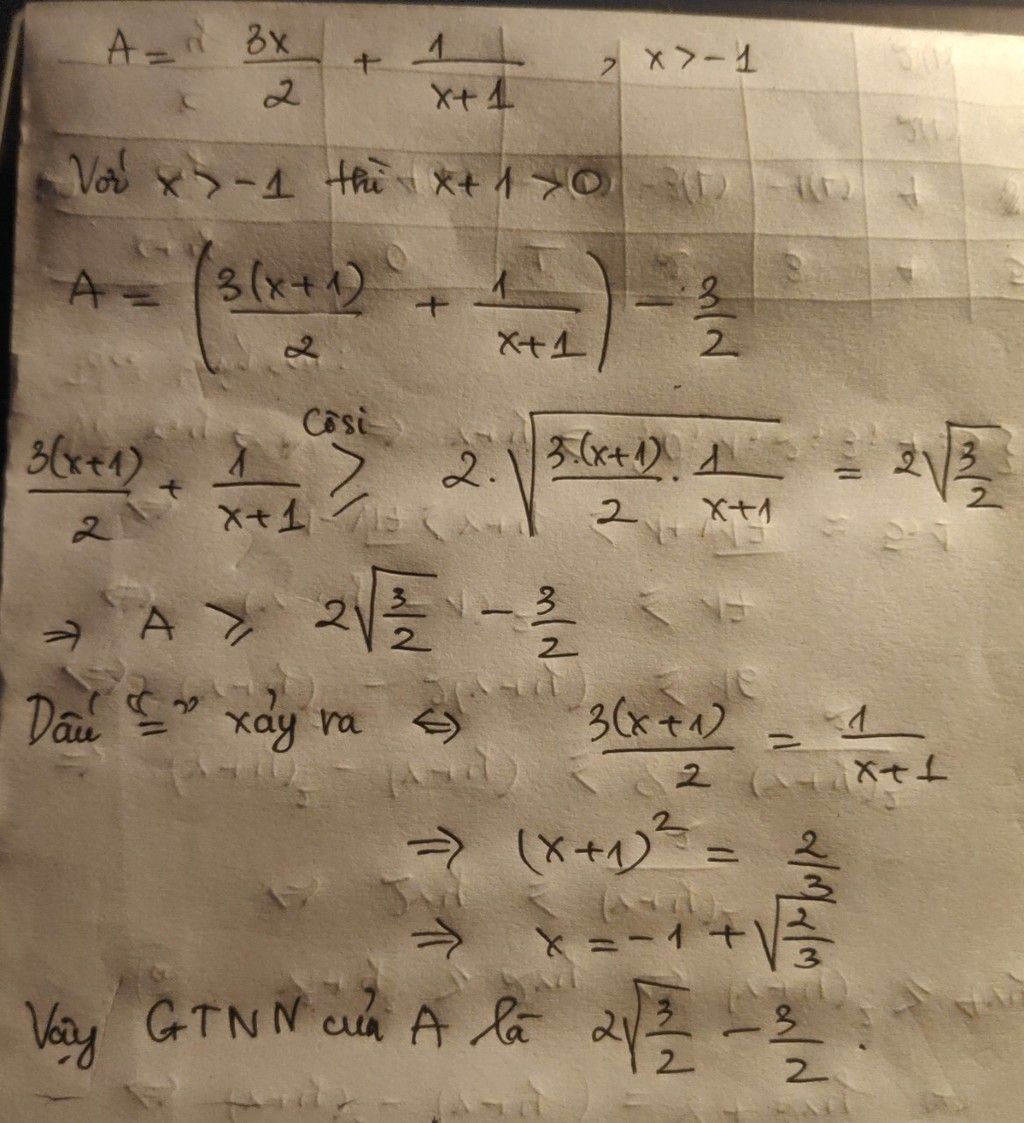 A = 3x/2 + 1/(x+1) , x > -1
Với x > -1 thì x+1 > 0
A = (3(x+1)/2 + 1/(x+1)) - 3/2
3(x+1)/2 + 1/(x+1) ≥ Côsi 2.√(3.(x+1)/2 . 1/(x+1)) = 2√(3/2)
⇒ A ≥ 2√(3/2) - 3/2
Dấu "=" xảy ra ⇔ 3(x+1)/2 = 1/(x+1)
⇒ (x+1)² = 2/3
⇒ x = -1 + √(2/3)
Vậy GTNN của A là 2√(3/2) - 3/2 .